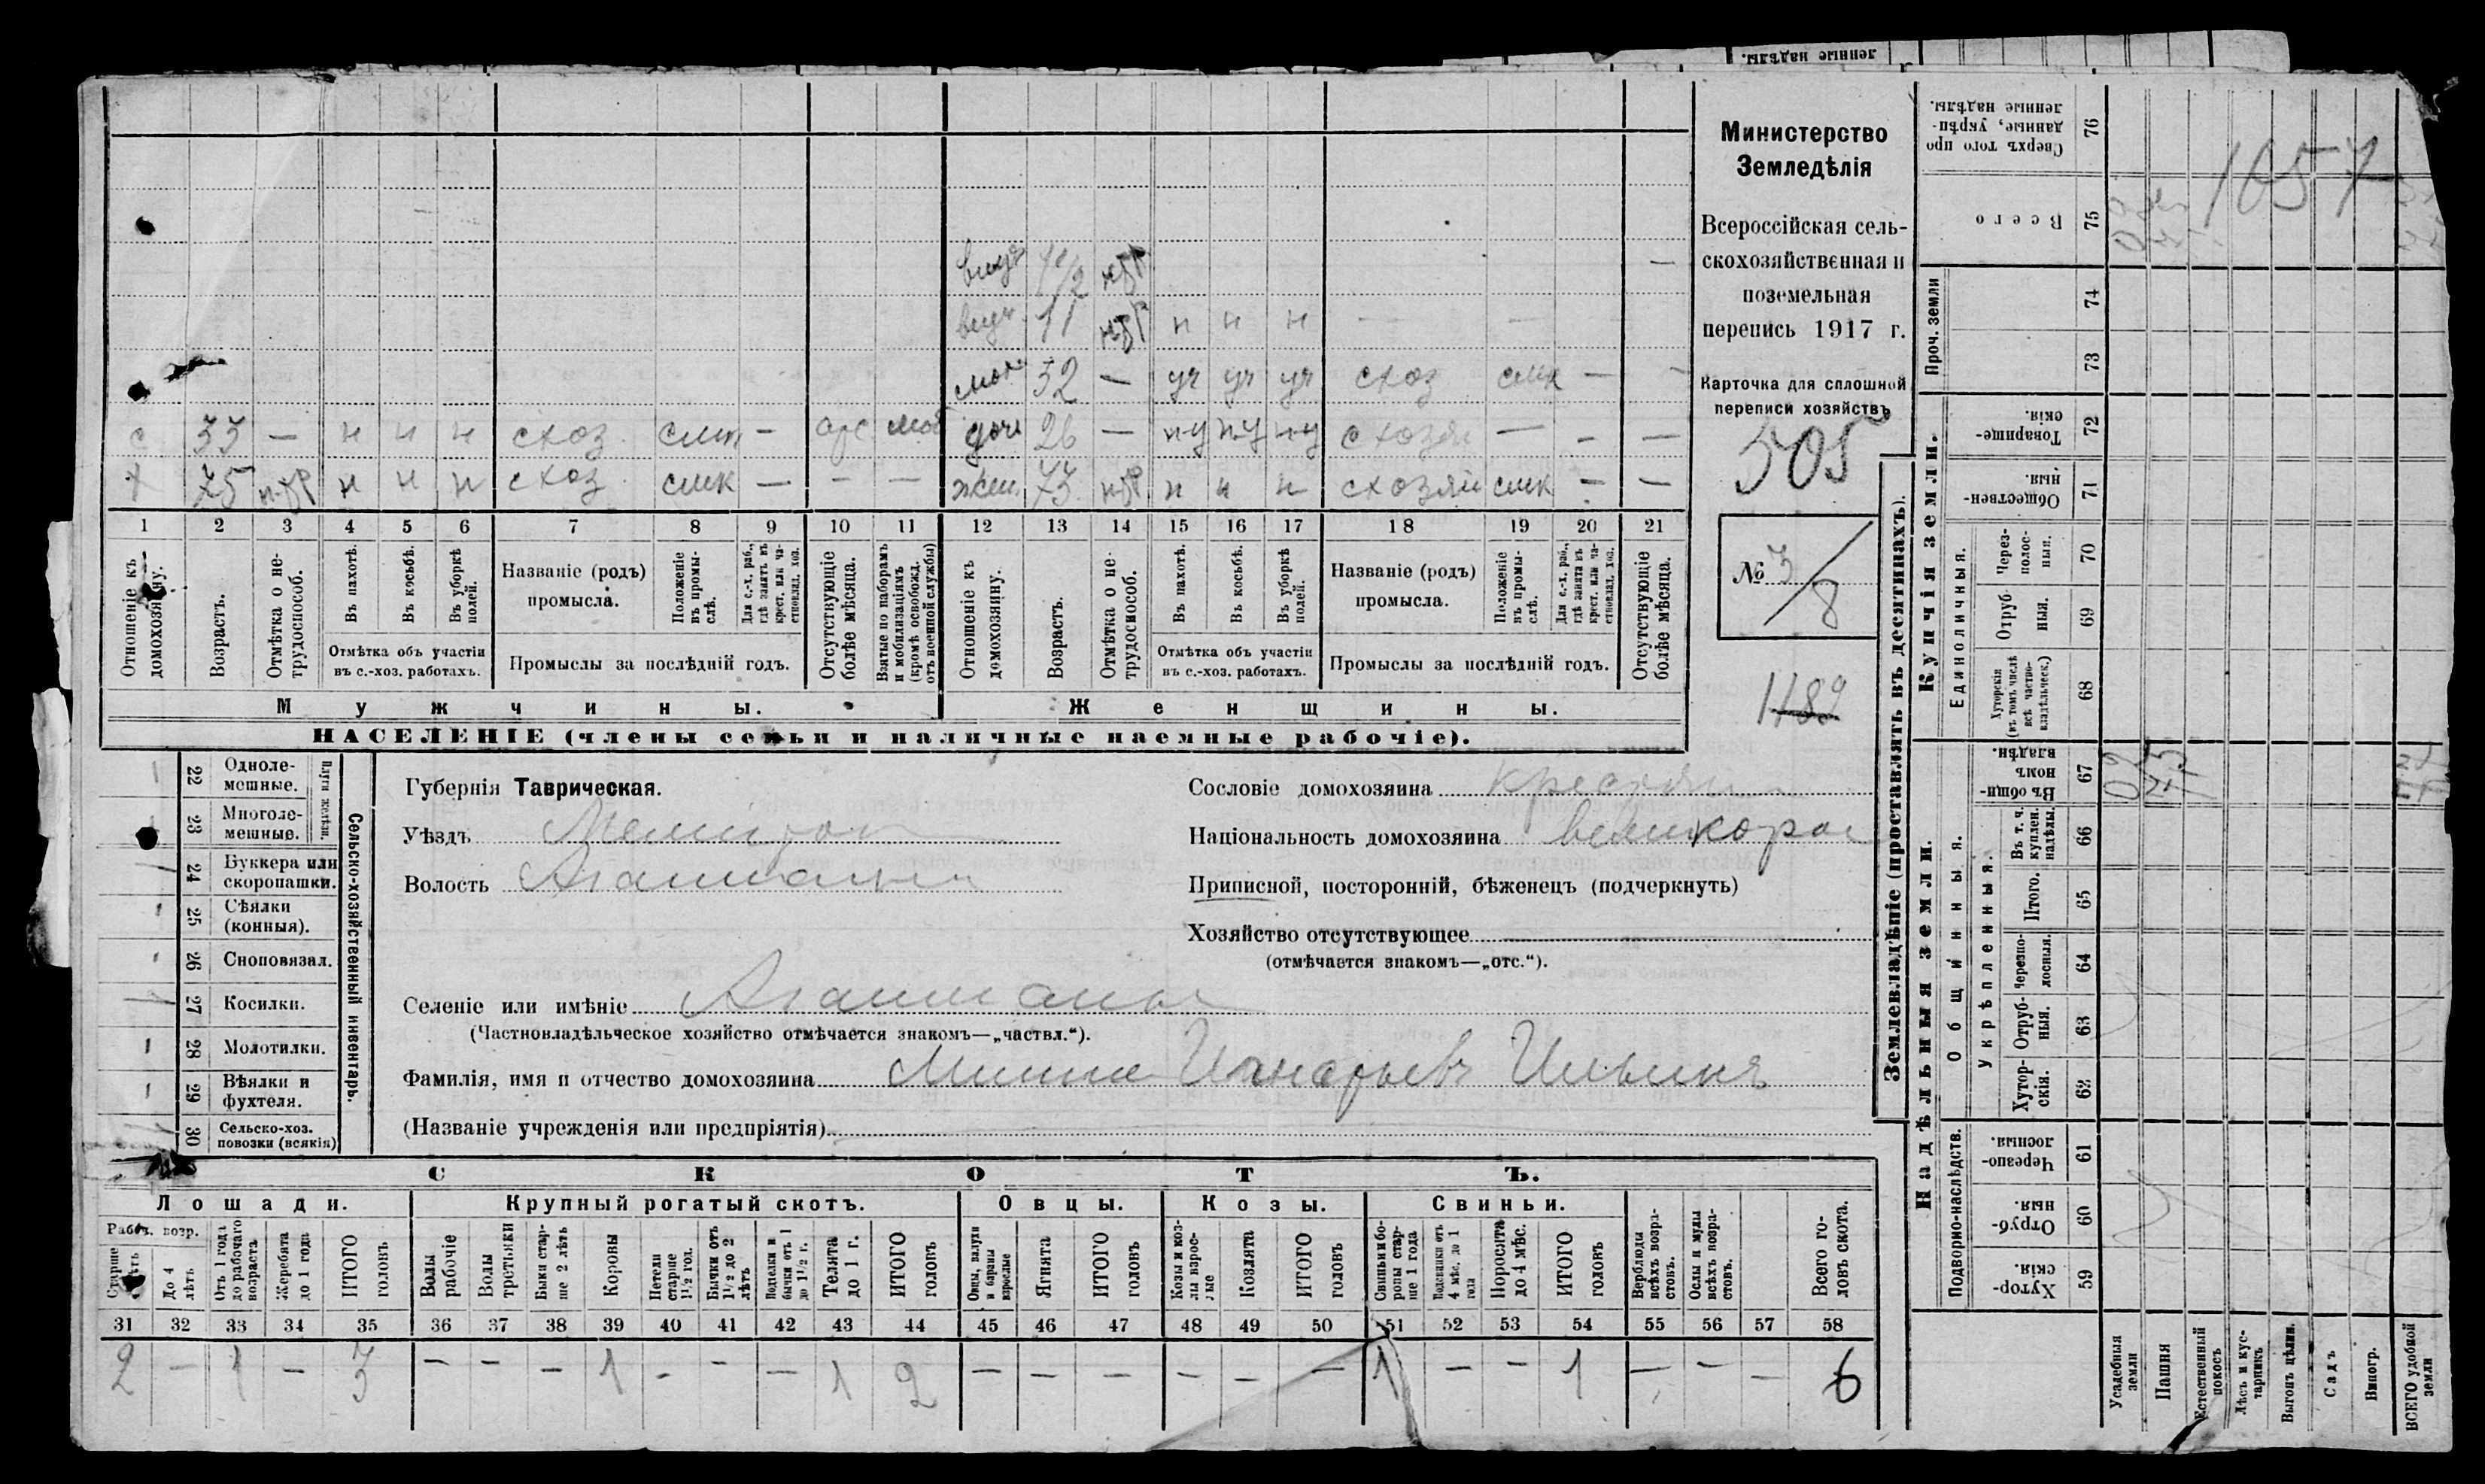 ленные надѣлы.
внуч 1 1/2 н-тр —
внуч. 11 н-тр н н н — —
32 — уч уч уч схоз смк — —
с 33 — н н н схоз. — отс моб
доч 26 — н-у н-у н-у схозяй — — —
х 75 н-тр н н н схоз смк — — —
жен. 73 н-тр н н н схозяй смк — —
1 2 3 4 5 6 7 8 9 10 11 12 13 14 15 16 17 18 19 20 21
Отношеніе къ домохозяину.
Возрастъ.
Отмѣтка о нетрудоспособ.
Въ пахотѣ.
Въ косьбѣ.
Въ уборкѣ полей.
Отмѣтка объ участіи
въ с.-хоз. работахъ.
Названіе (родъ)
промысла.
Положеніе въ промыслѣ.
Для с.-х. раб., гдѣ занятъ въ крест. или частновлад. хоз.
Промыслы за послѣдній годъ.
Отсутствующіе болѣе мѣсяца.
Взятые по наборамъ и мобилизаціямъ (кромѣ освобожд. отъ военной службы)
Отношеніе къ домохозяину.
Возрастъ.
Отмѣтка о нетрудоспособ.
Въ пахотѣ.
Въ косьбѣ.
Въ уборкѣ полей.
Отмѣтка объ участіи
въ с.-хоз. работахъ.
Названіе (родъ)
промысла.
Положеніе въ промыслѣ.
Для с.-х. раб., гдѣ занята въ крест. или частновлад. хоз.
Промыслы за послѣдній годъ.
Отсутствующіе болѣе мѣсяца.
Мужчины.
Женщины.
НАСЕЛЕНІЕ (члены семьи и наличные наемные рабочіе).
Министерство
Земледѣлія
Всероссійская сель-
скохозяйственная и
поземельная
перепись 1917 г.
Карточка для сплошной
переписи хозяйствъ
505
№ 3/8
1482
22 Одноле-
мешные.
23 Многоле-
мешные.
Плуги желѣзн.
24 Буккера или
скоропашки.
25 Сѣялки
(конныя).
26 Сноповязал.
27 Косилки.
28 Молотилки.
29 Вѣялки и
фухтеля.
30 Сельско-хоз.
повозки (всякія)
Сельско-хозяйственный инвентарь.
Губернія Таврическая.
Уѣздъ Мелитоп
Волость Агайманы
Селеніе или имѣніе Агайманы
(Частновладѣльческое хозяйство отмѣчается знакомъ—„частвл.“).
Фамилія, имя и отчество домохозяина Ильинъ
(Названіе учрежденія или предпріятія)
Сословіе домохозяина крестьян
Національность домохозяина великорос
Приписной, посторонній, бѣженецъ (подчеркнуть)
Хозяйство отсутствующее
(отмѣчается знакомъ—„отс.“).
СКОТЪ.
Лошади. Крупный рогатый скотъ. Овцы. Козы. Свиньи.
Рабоч. возр.
До 4 лѣтъ
Отъ 1 года до рабочаго возраста
Жеребята до 1 года
ИТОГО головъ
Волы рабочіе
Волы третьяки
Быки старше 2 лѣтъ
Коровы
Нетели старше 1½ год.
Бычки отъ 1½ до 2 лѣтъ
бычки отъ 1 до 1½ г.
Телята до 1 г.
ИТОГО головъ
Овцы, валухи и бараны взрослые
Ягнята
ИТОГО головъ
Козы и козлы взрослые
Козлята
ИТОГО головъ
Свиньи и боровы старше 1 года
Подсвинки отъ 4 мѣс. до 1 года
Поросята до 4 мѣс.
ИТОГО головъ
Верблюды всѣхъ возрастовъ.
Ослы и мулы всѣхъ возрастовъ.
Всего головъ скота.
31 32 33 34 35 36 37 38 39 40 41 42 43 44 45 46 47 48 49 50 51 52 53 54 55 56 57 58
2 — 1 — 3 — — — 1 — — — 1 2 — — — — — — 1 — — 1 — — — 6
Землевладѣніе (проставлять въ десятинахъ).
Сверхъ того проданные, укрѣпленные надѣлы.
76
Всего
75
1057
Проч. земли
74
73
Купчія земли.
Товарищескія.
72
Общественныя.
71
Единоличныя.
Черезполосныя.
70
Отрубныя.
69
Хуторскія (въ томъ числѣ всѣ частновладѣльческ.)
68
Надѣльныя земли.
Общинныя.
Въ общинномъ владѣн.
67
Укрѣпленныя.
Въ т. ч. куплен. надѣлы.
66
Итого.
65
Черезполосныя.
64
Отрубныя.
63
Хуторскія.
62
Подворно-наслѣдств.
Черезполосныя.
61
Отрубныя.
60
Хуторскія.
59
Усадебныя земли
Пашня
Естественный покосъ
Лѣсъ и кустарникъ
Выгонъ цѣлин.
Садъ
Виногр.
ВСЕГО удобной земли